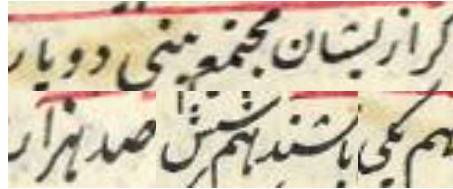 گر ازیشان مجتمع بینی دو یار
هم یکی باشند هم ششصد هزار